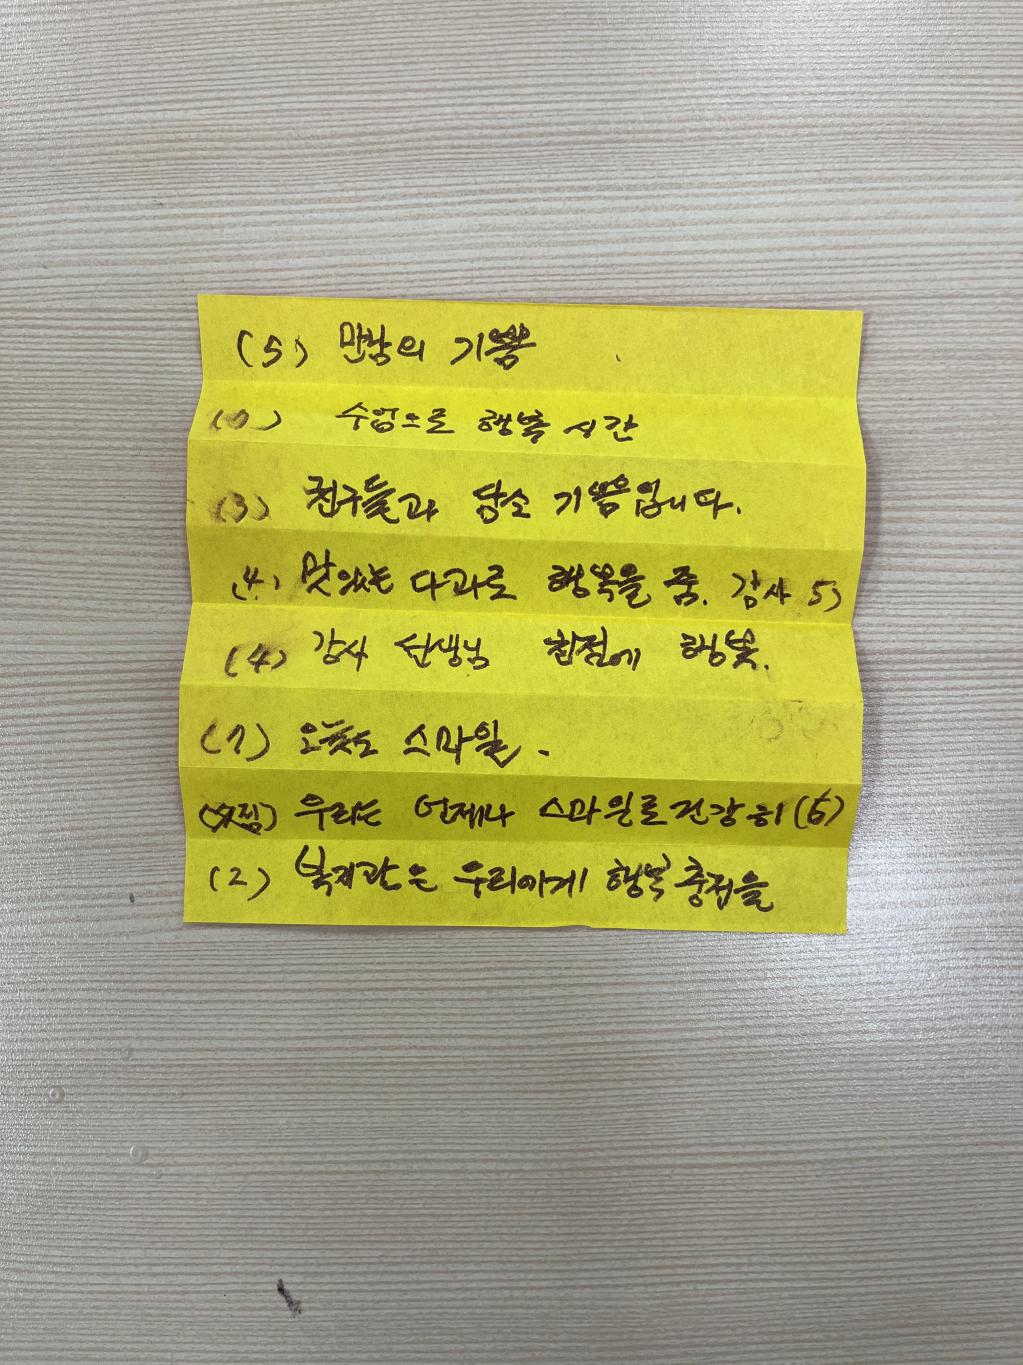 (5) 만남의 기쁨
수업으로 행복 시간
(3) 친구들과 담소 기쁨입니다.
(4) 맛있는 다과로 행복을 줌. 감사 5)
(4) 강사 선생님 친절에 행복.
(7) 오늘도 스마일.
우리는 언제나 스마일로 건강히 (6)
(2) 복지관은 우리에게 행복 충전을